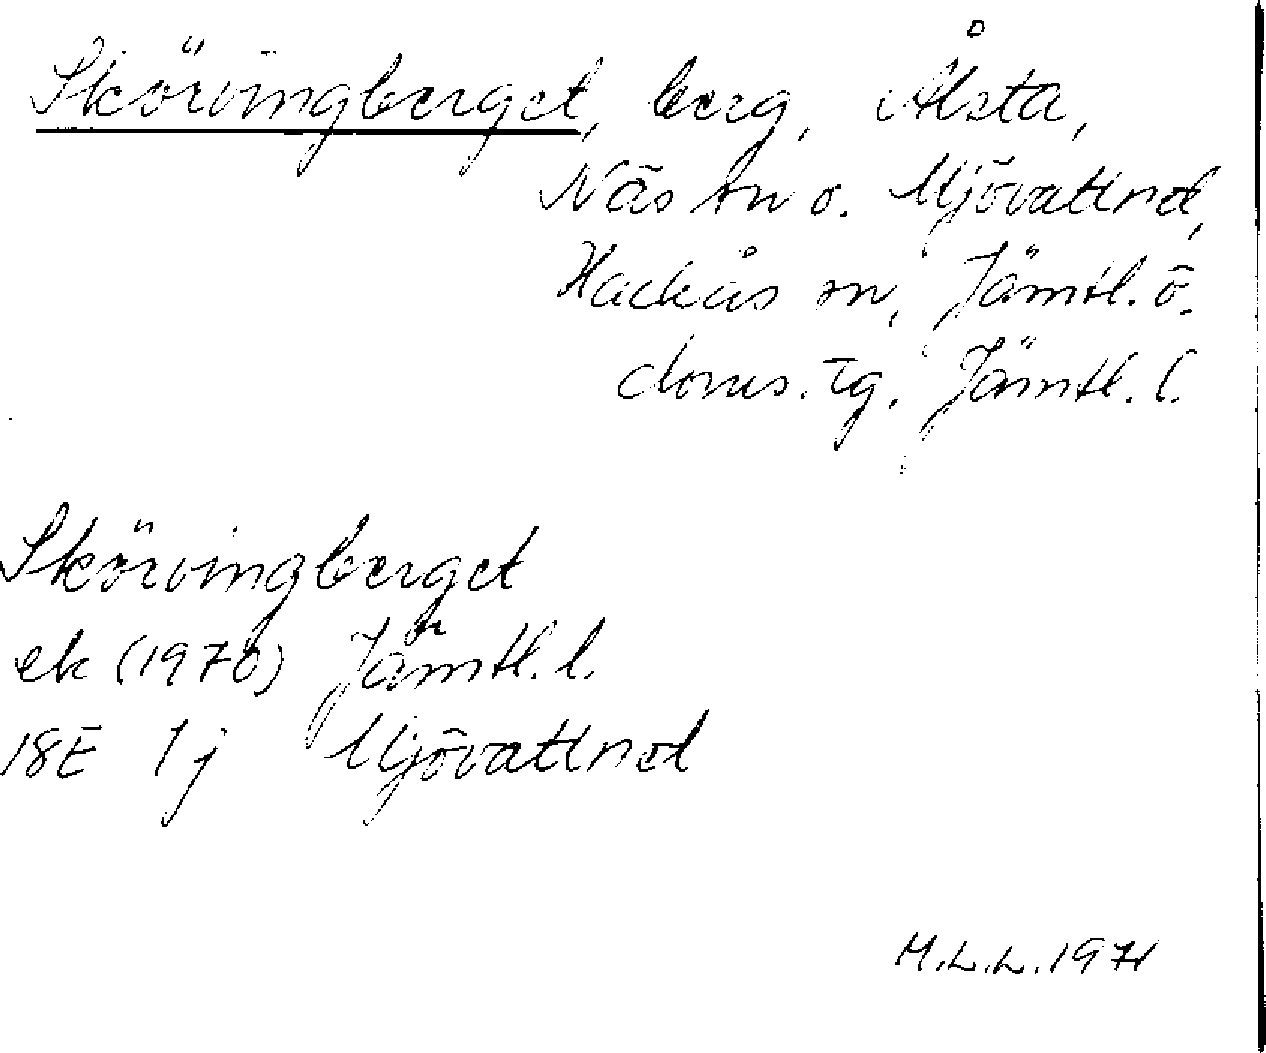 Skörvingberget, berg, Ålsta,
Näs sn o. Mjövattnet,
Hackås sn, Jämtl. ö.
doms. tg, Jämtl. l.
Skörvingberget
ek (1970) Jämtl. l.
18E 1j Mjövattnet
M.L.L. 1971